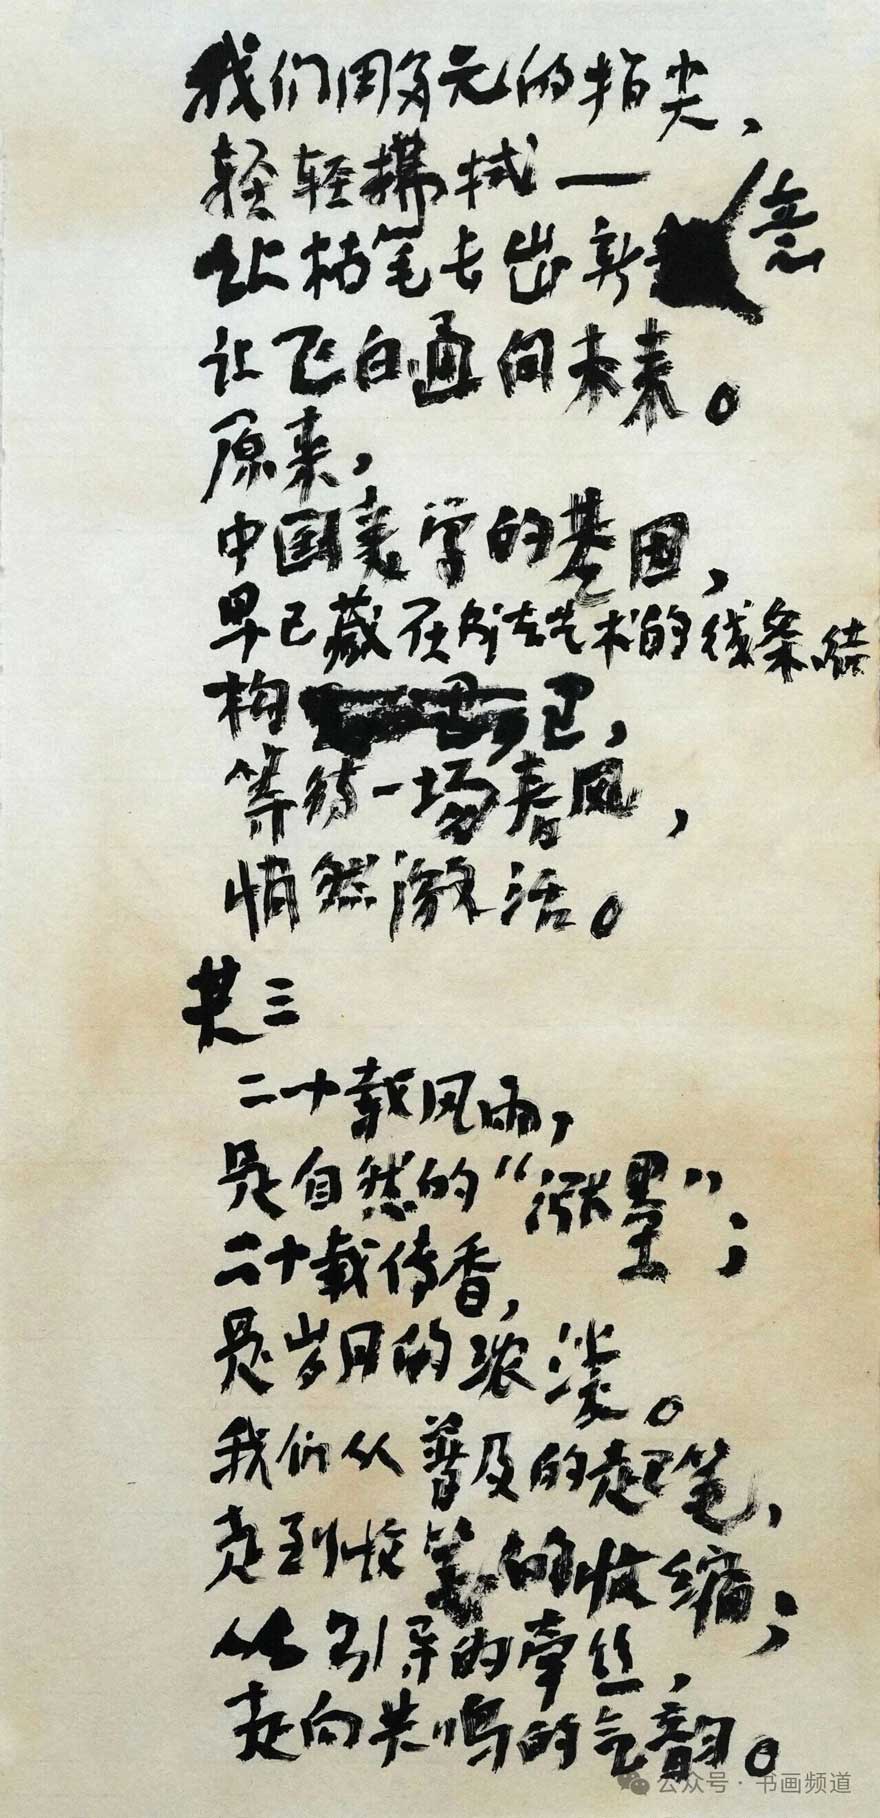 我们用多元的指尖，
轻轻拂拭一
让枯笔去出新意
让飞白通向未来。
原来，
中国美学的基因，
早已藏在书法艺术的线条、结
构里，
等待一场春风，
悄然激活。
其三
二十载风雨，
是自然的“涨墨”；
二十载传香，
是岁月的浓淡。
我们从普及的起笔，
走到收缩；
从引导的牵丝，
走向共鸣的气韵。
公众号·书画频道